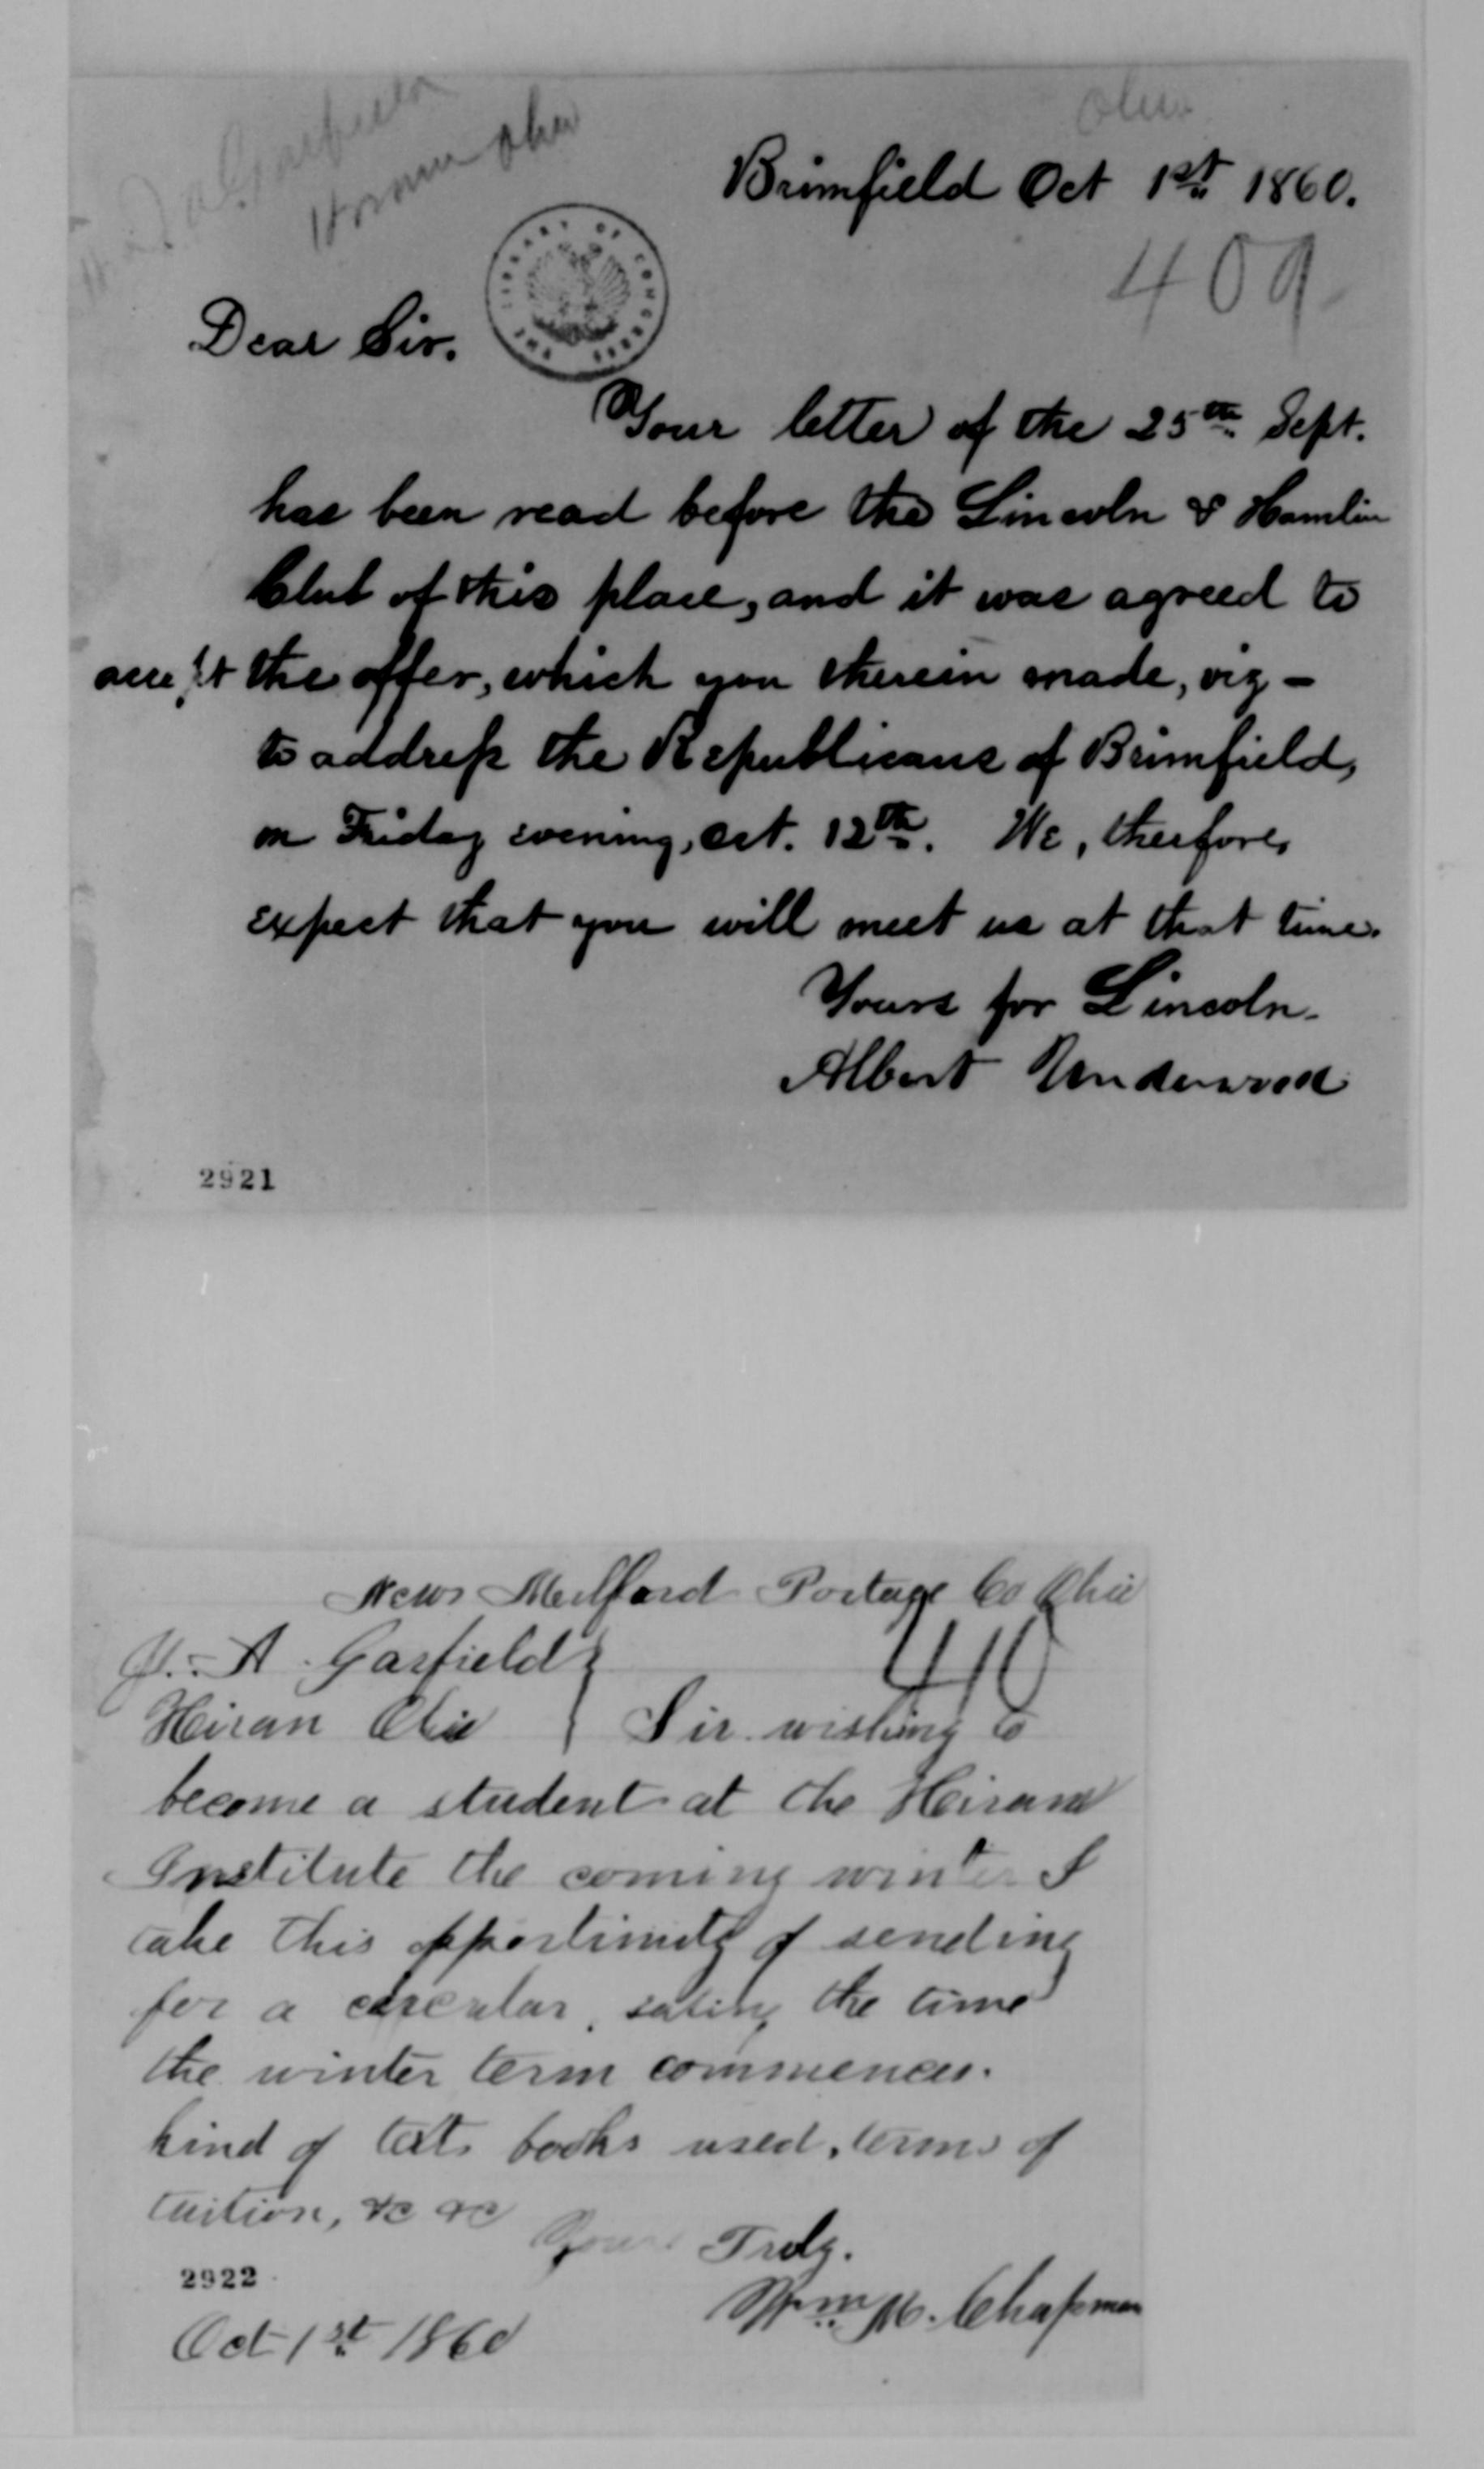 Ohio
Hiram Ohio
Brimfield Oct 1st 1860.
409
THE LIBRARY OF CONGRESS
Dear Sir.
Your letter of the 25th Sept.
has been read before the Lincoln & Hamlin
Club of this place, and it was agreed to
accept the offer, which you therein made, viz -
to address the Republicans of Brimfield,
on Friday evening, Oct. 12th. We, therefore,
expect that you will meet us at that time.
Yours for Lincoln.
Albert Underwood
2921
New Milford Portage Co Ohio
J. A. Garfield
410
Hiran Ohio } Sir. wishing to
become a student at the Hiram
Institute the coming winter I
take this opportunity of sending
for a circular, sating the time
the winter term commences.
kind of text books used, terms of
tuition, &c &c
Yours Truly.
2922
Wm M. Chapman
Oct 1st 1860